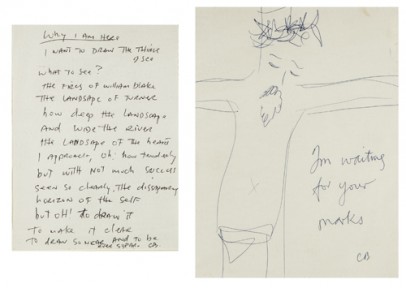 Why I am Here
I WANT TO DRAW THE THINGS
I SEE
WHAT TO SEE?
THE FIRES OF WILLIAM BLAKE
THE LANDSCAPE OF TURNER
how deep the LANDSCAPE
AND WIDE THE RIVER
the LANDSCAPE OF the heart
I approach, oh! how tenderly
but with NOT much success
seen so clearly, the disappearing
horizon of the self
but oh! to draw it
To make it clear
To draw so near, and to be
CB
Im waiting
for your
marks
CB